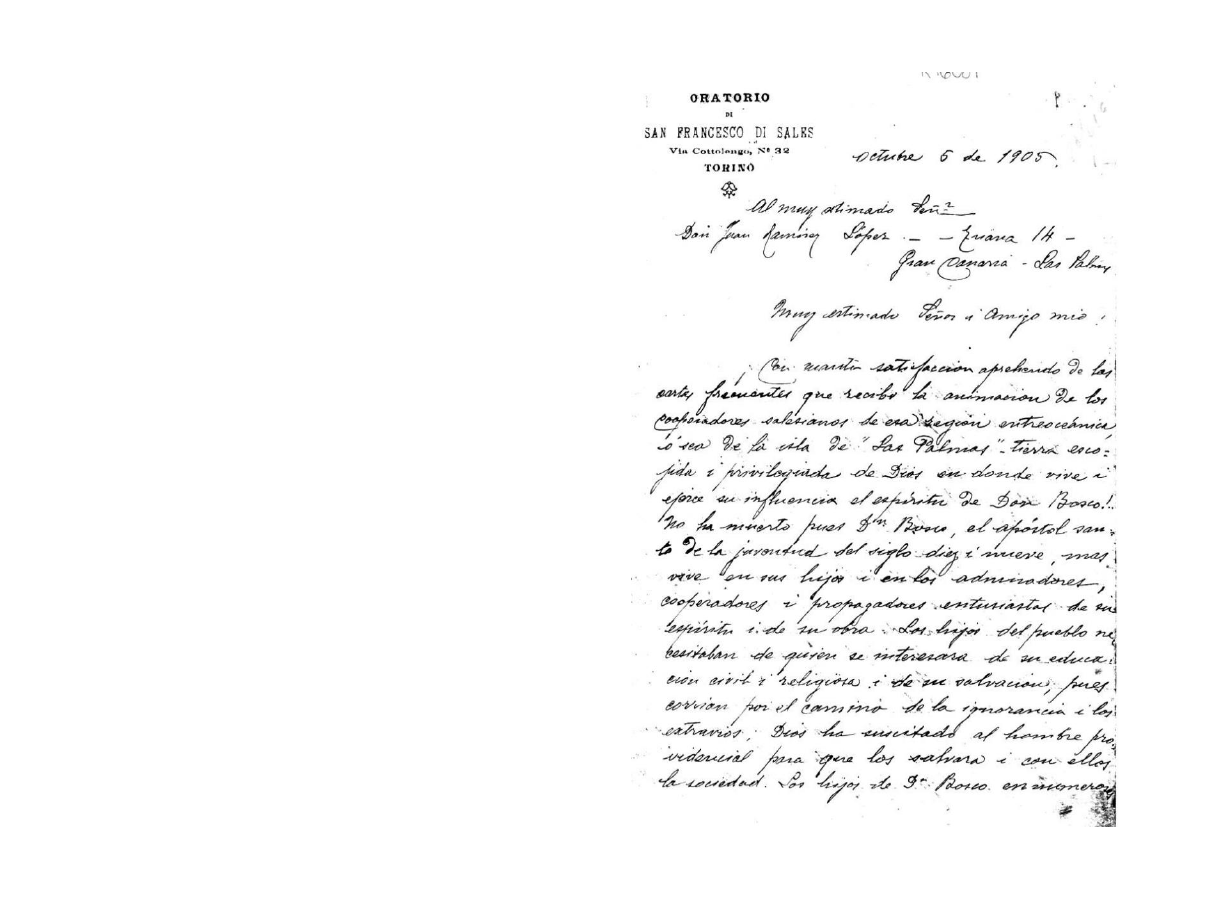 ORATORIO
DI
SAN FRANCESCO DI SALES
Via Cottolengo, Nº 32
TORINO
Octubre 5 de 1905.
Al muy stimado Señr
Don Juan Ramírez López - - Triana 14 -
Gran Canaria - Las Palmas
Muy estimado Señor i Amigo mio:
Con satisfaccion aprehendo de las
cartas frecuentes que recibo la animacion de los
cooperadores salesianos de esa region entreoceánica
ó sea de la isla de "Las Palmas" - tierra esco-
jida i privilegiada de Dios en donde vive i
ejerce su influencia el espíritu de Don Bosco!..
No ha muerto pues Dn Bosco, el apóstol san-
to de la juventud del siglo diez i nueve, mas
vive en sus hijos i en los admiradores,
cooperadores i propagadores entusiastas de su
espíritu i de su obra. Los hijos del pueblo ne
cesitaban de quien se interesara de su educa-
cion civil i religiosa i de su salvacion, pues
corrian por el camino de la ignorancia i los
extravios; Dios ha suscitado al hombre pro-
videncial para que los salvara i con ellos
la sociedad. Los hijos de Dn Bosco en numeros